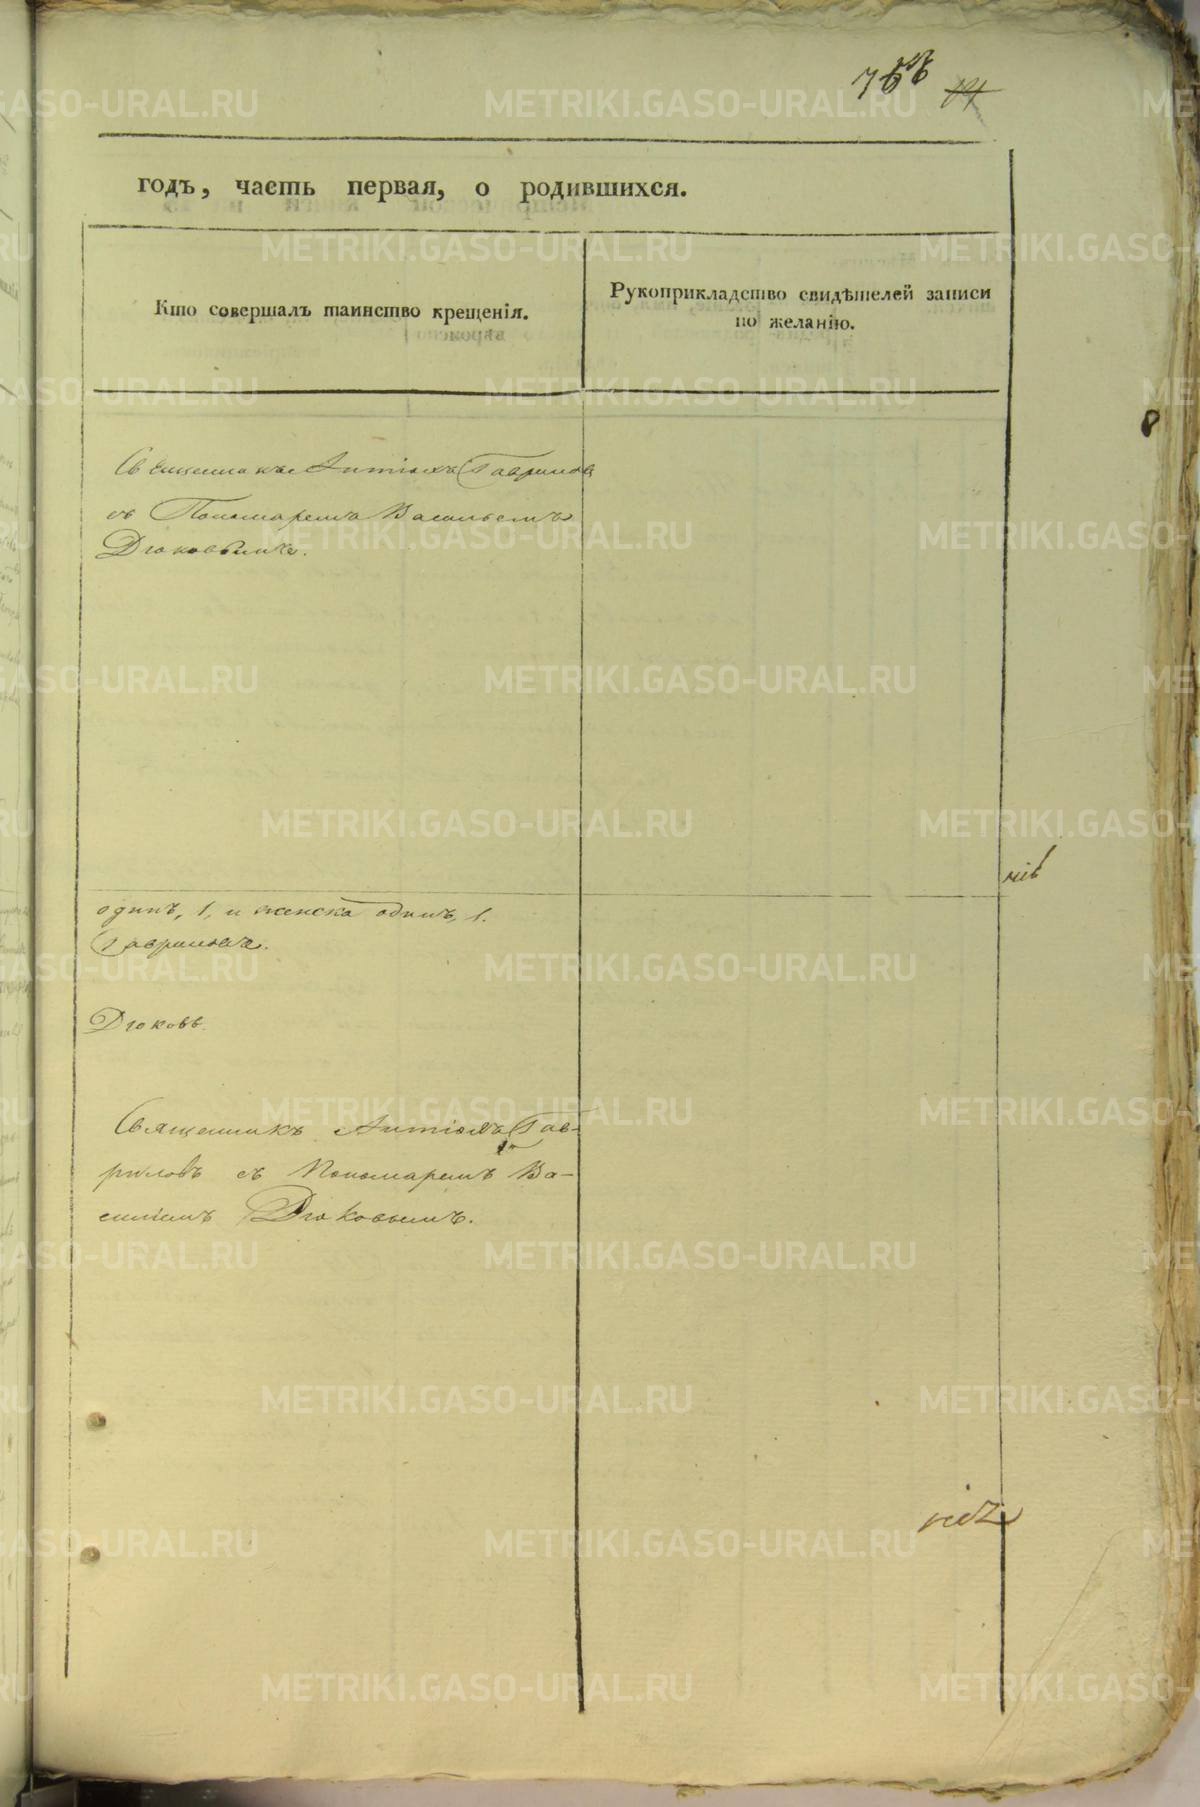 766 14
годъ, часть первая, о родившихся.
Кто совершалъ таинство крещенія.
Рукоприкладство свидѣтелей записи
по желанію.
Священникъ Антіохъ Гавриловъ
съ Пономаремъ Васильемъ
Дюковымъ.
одинъ, 1, и женска одинъ, 1.
Гавриловъ.
Дюковъ.
Священникъ Антіохъ Гав-
риловъ съ Пономаремъ Ва-
силіемъ Дюковымъ.
METRIKI.GASO-URAL.RU